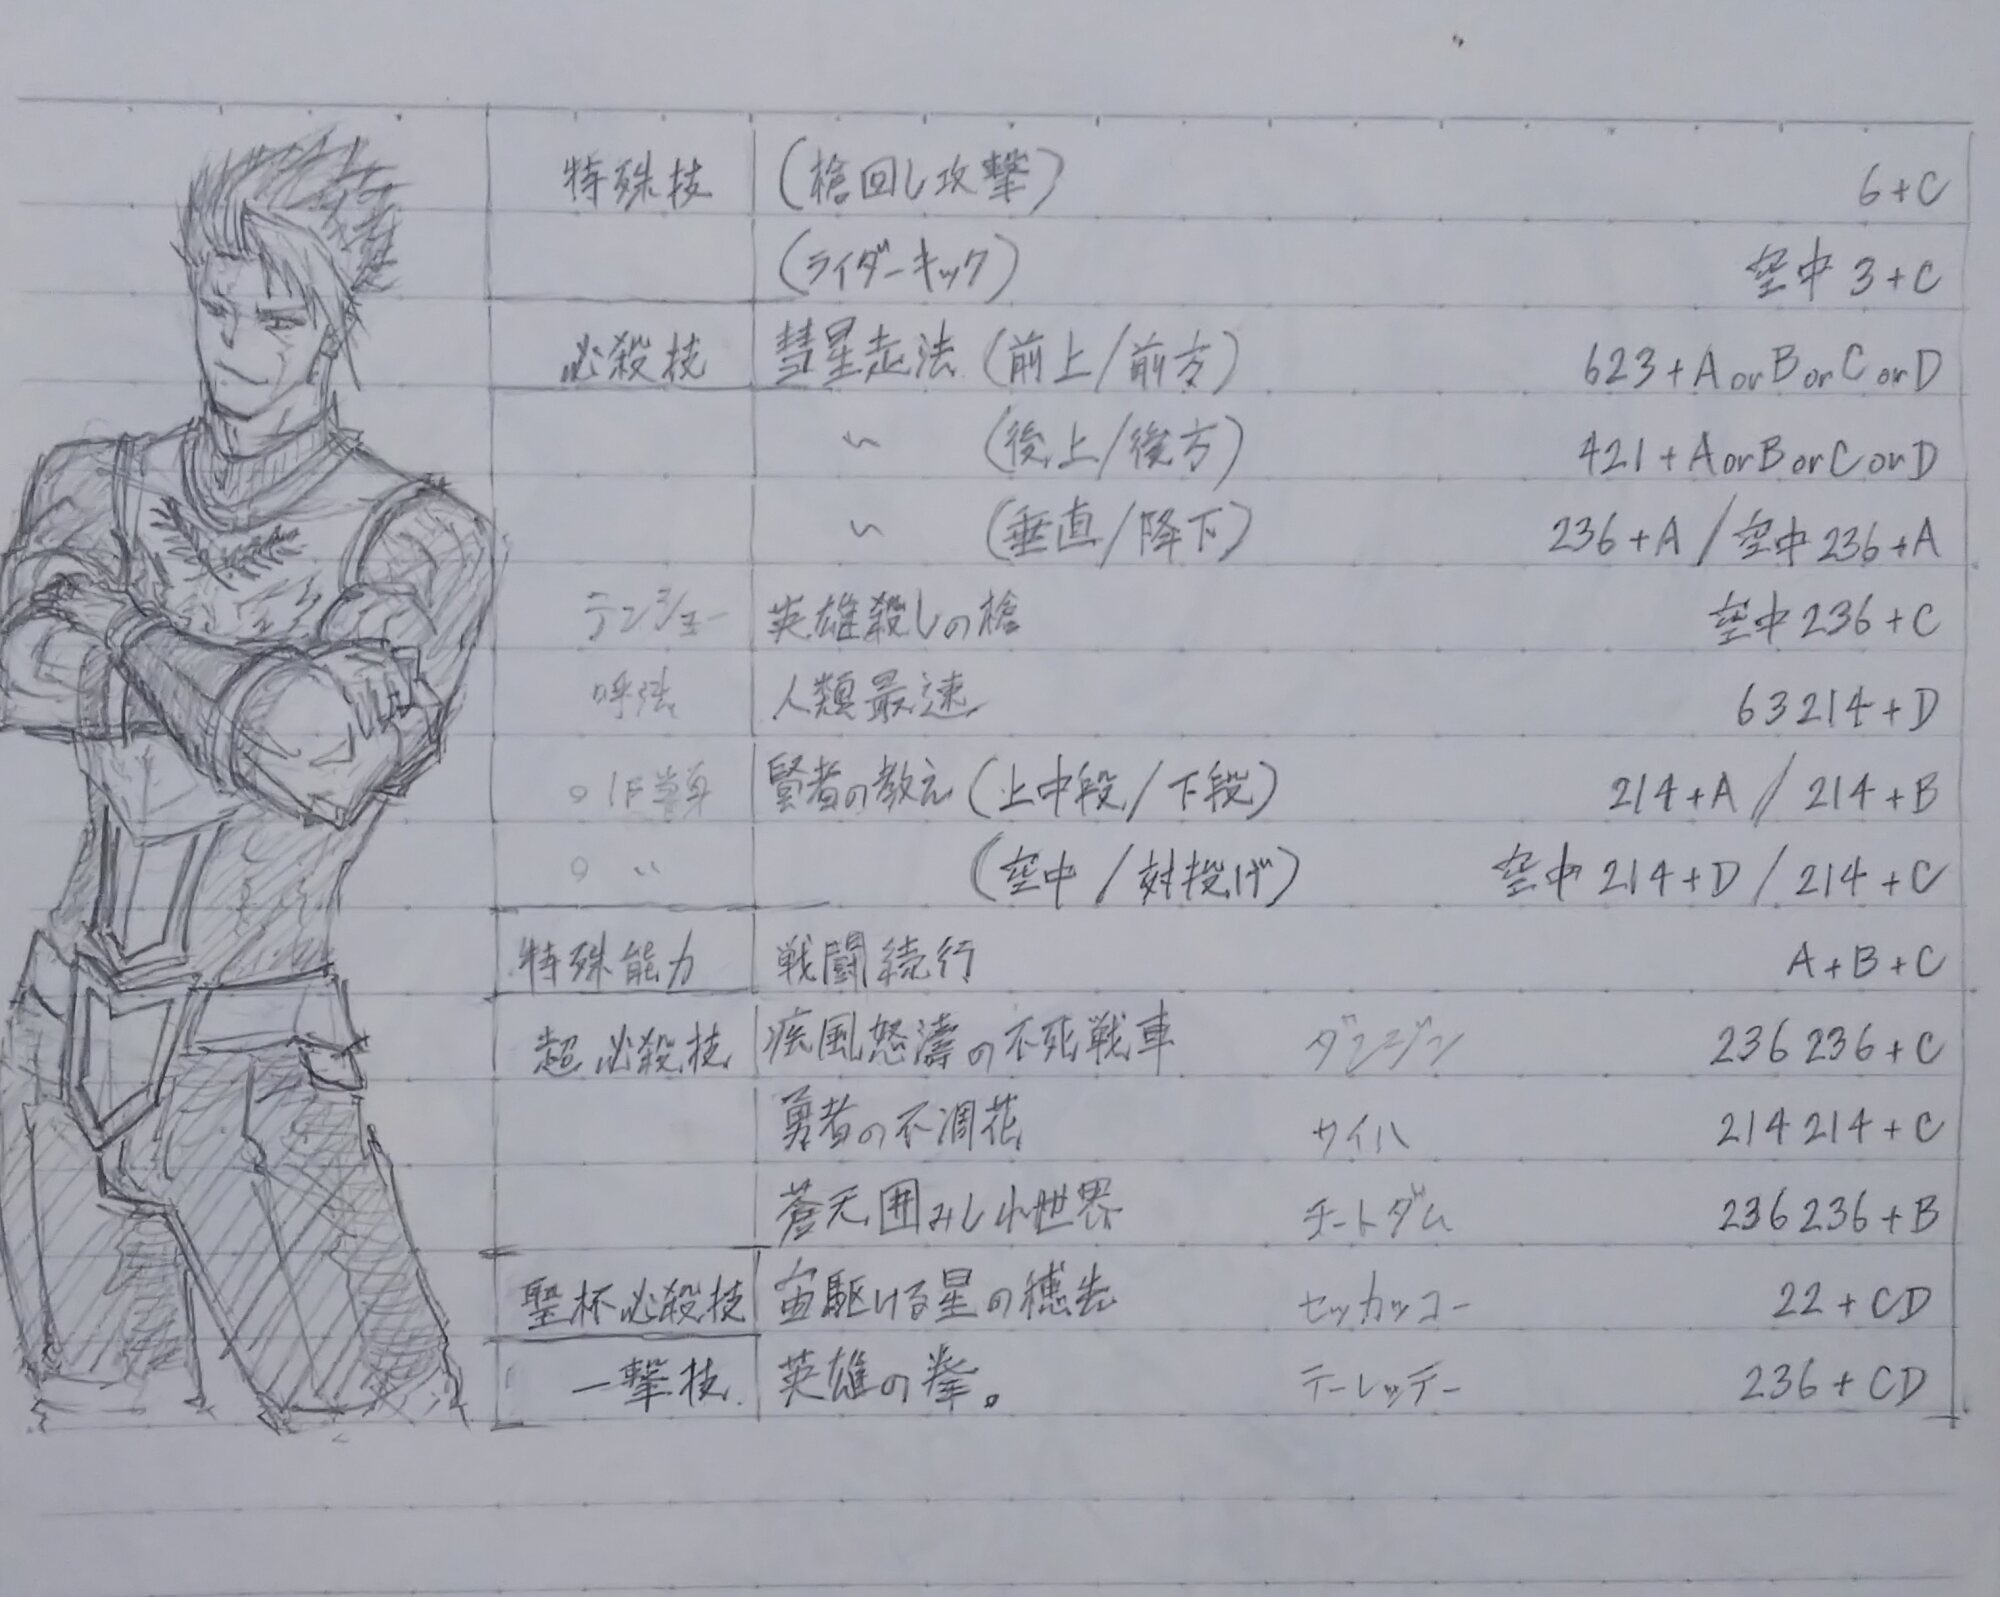 特殊技 (槍回し攻撃) 6+C
(ライダーキック) 空中3+C
必殺技 彗星走法 (前上/前方) 623+AorBorCorD
〃 (後上/後方) 421+AorBorCorD
〃 (垂直/降下) 236+A/空中236+A
テンショー 英雄殺しの槍 空中236+C
呼法 人類最速 63214+D
。作当身 賢者の教え(上中段/下段) 214+A/214+B
。〃 (空中/対投げ) 空中214+D/214+C
特殊能力 戦闘続行 A+B+C
超必殺技 疾風怒濤の不死戦車 ダンジン 236236+C
勇者の不凋花 サイハ 214214+C
蒼天囲みし小世界 チートダム 236236+B
聖杯必殺技 宙駆ける星の穂先 セッカッコー 22+CD
一撃技 英雄の拳。 テーレッテー 236+CD